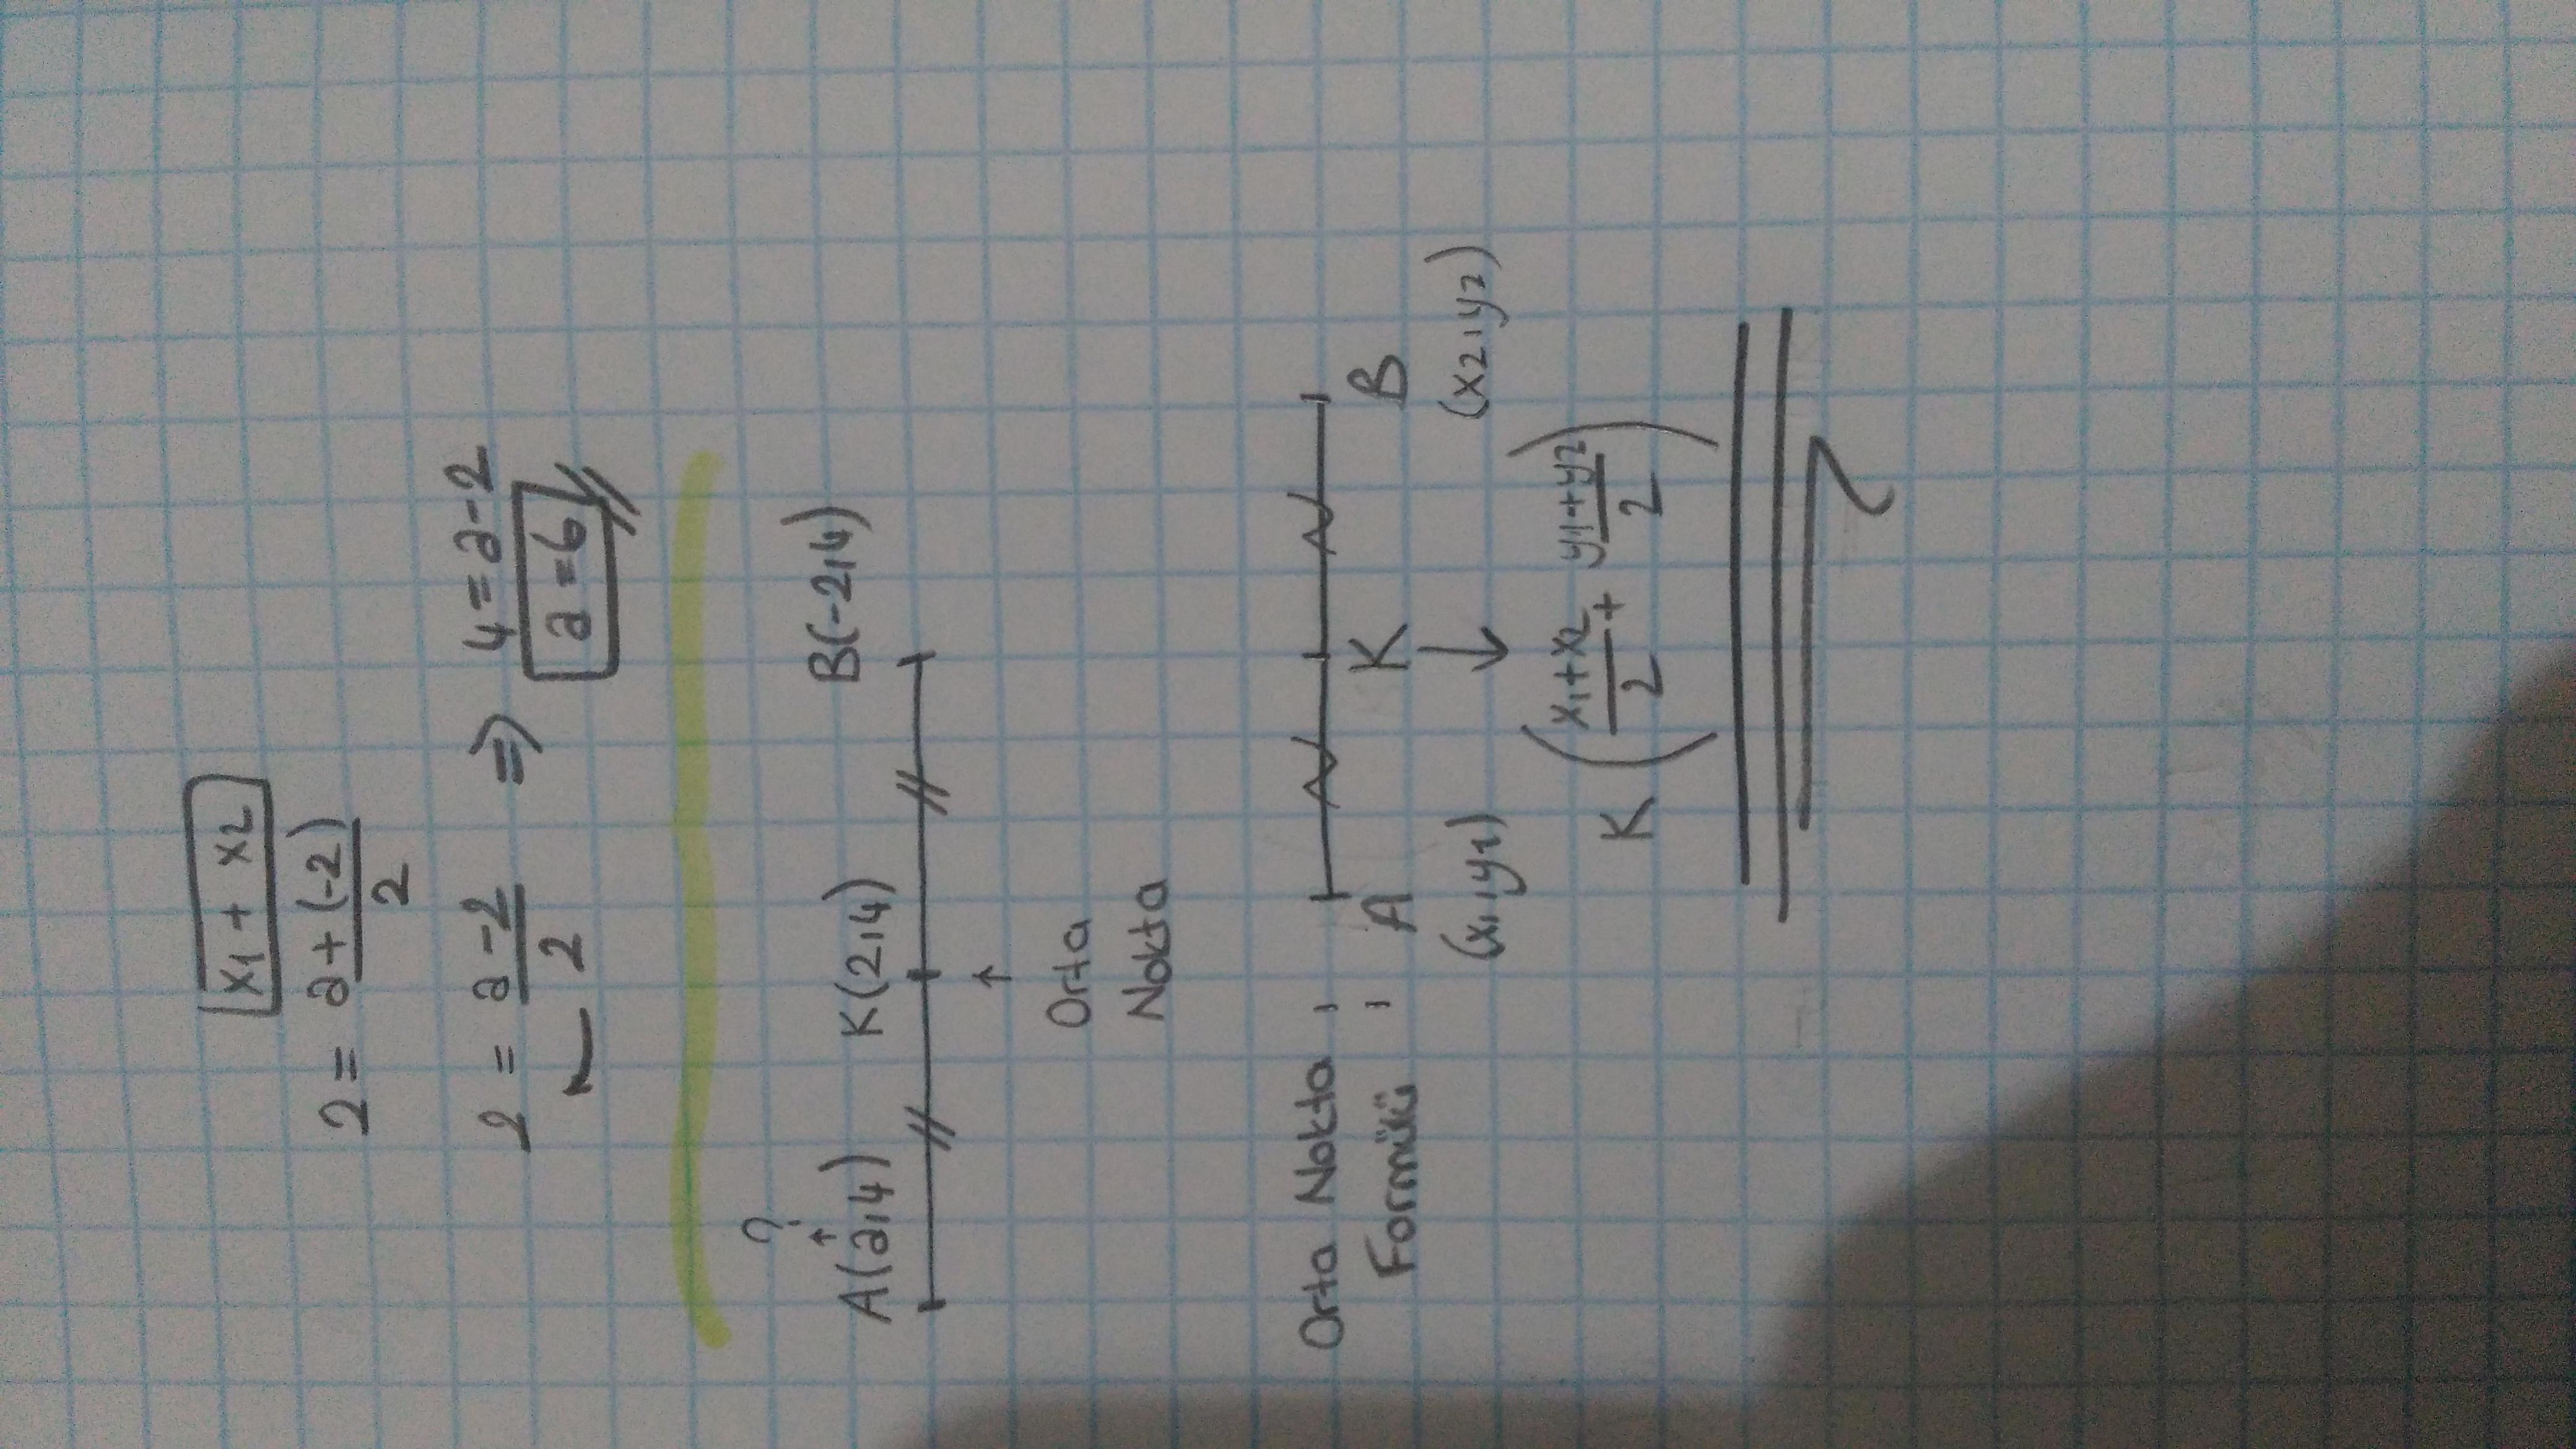 x1 + x2
2 = a+(-2)/2
2 = a-2/2 => 4=a-2
a=6
?
A(a,4) K(2,4) B(-2,4)
Orta
Nokta
Orta Nokta :
Formülü : A K B
(x1,y1) (x2,y2)
K (x1+x2/2 + y1+y2/2)